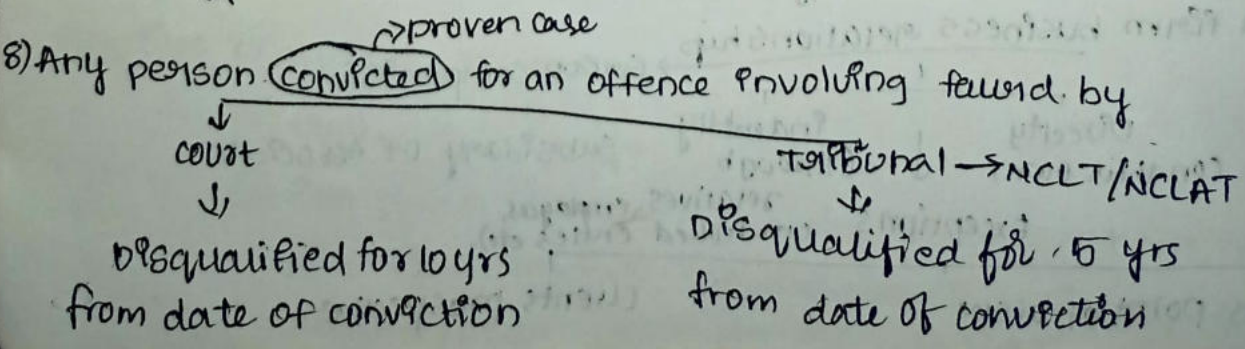 →proven case
8) Any person convicted for an offence involving fraud by
↓
court
Tribunal → NCLT/NCLAT
↓
↓
Disqualified for 10 yrs
from date of conviction
Disqualified for 5 yrs
from date of conviction